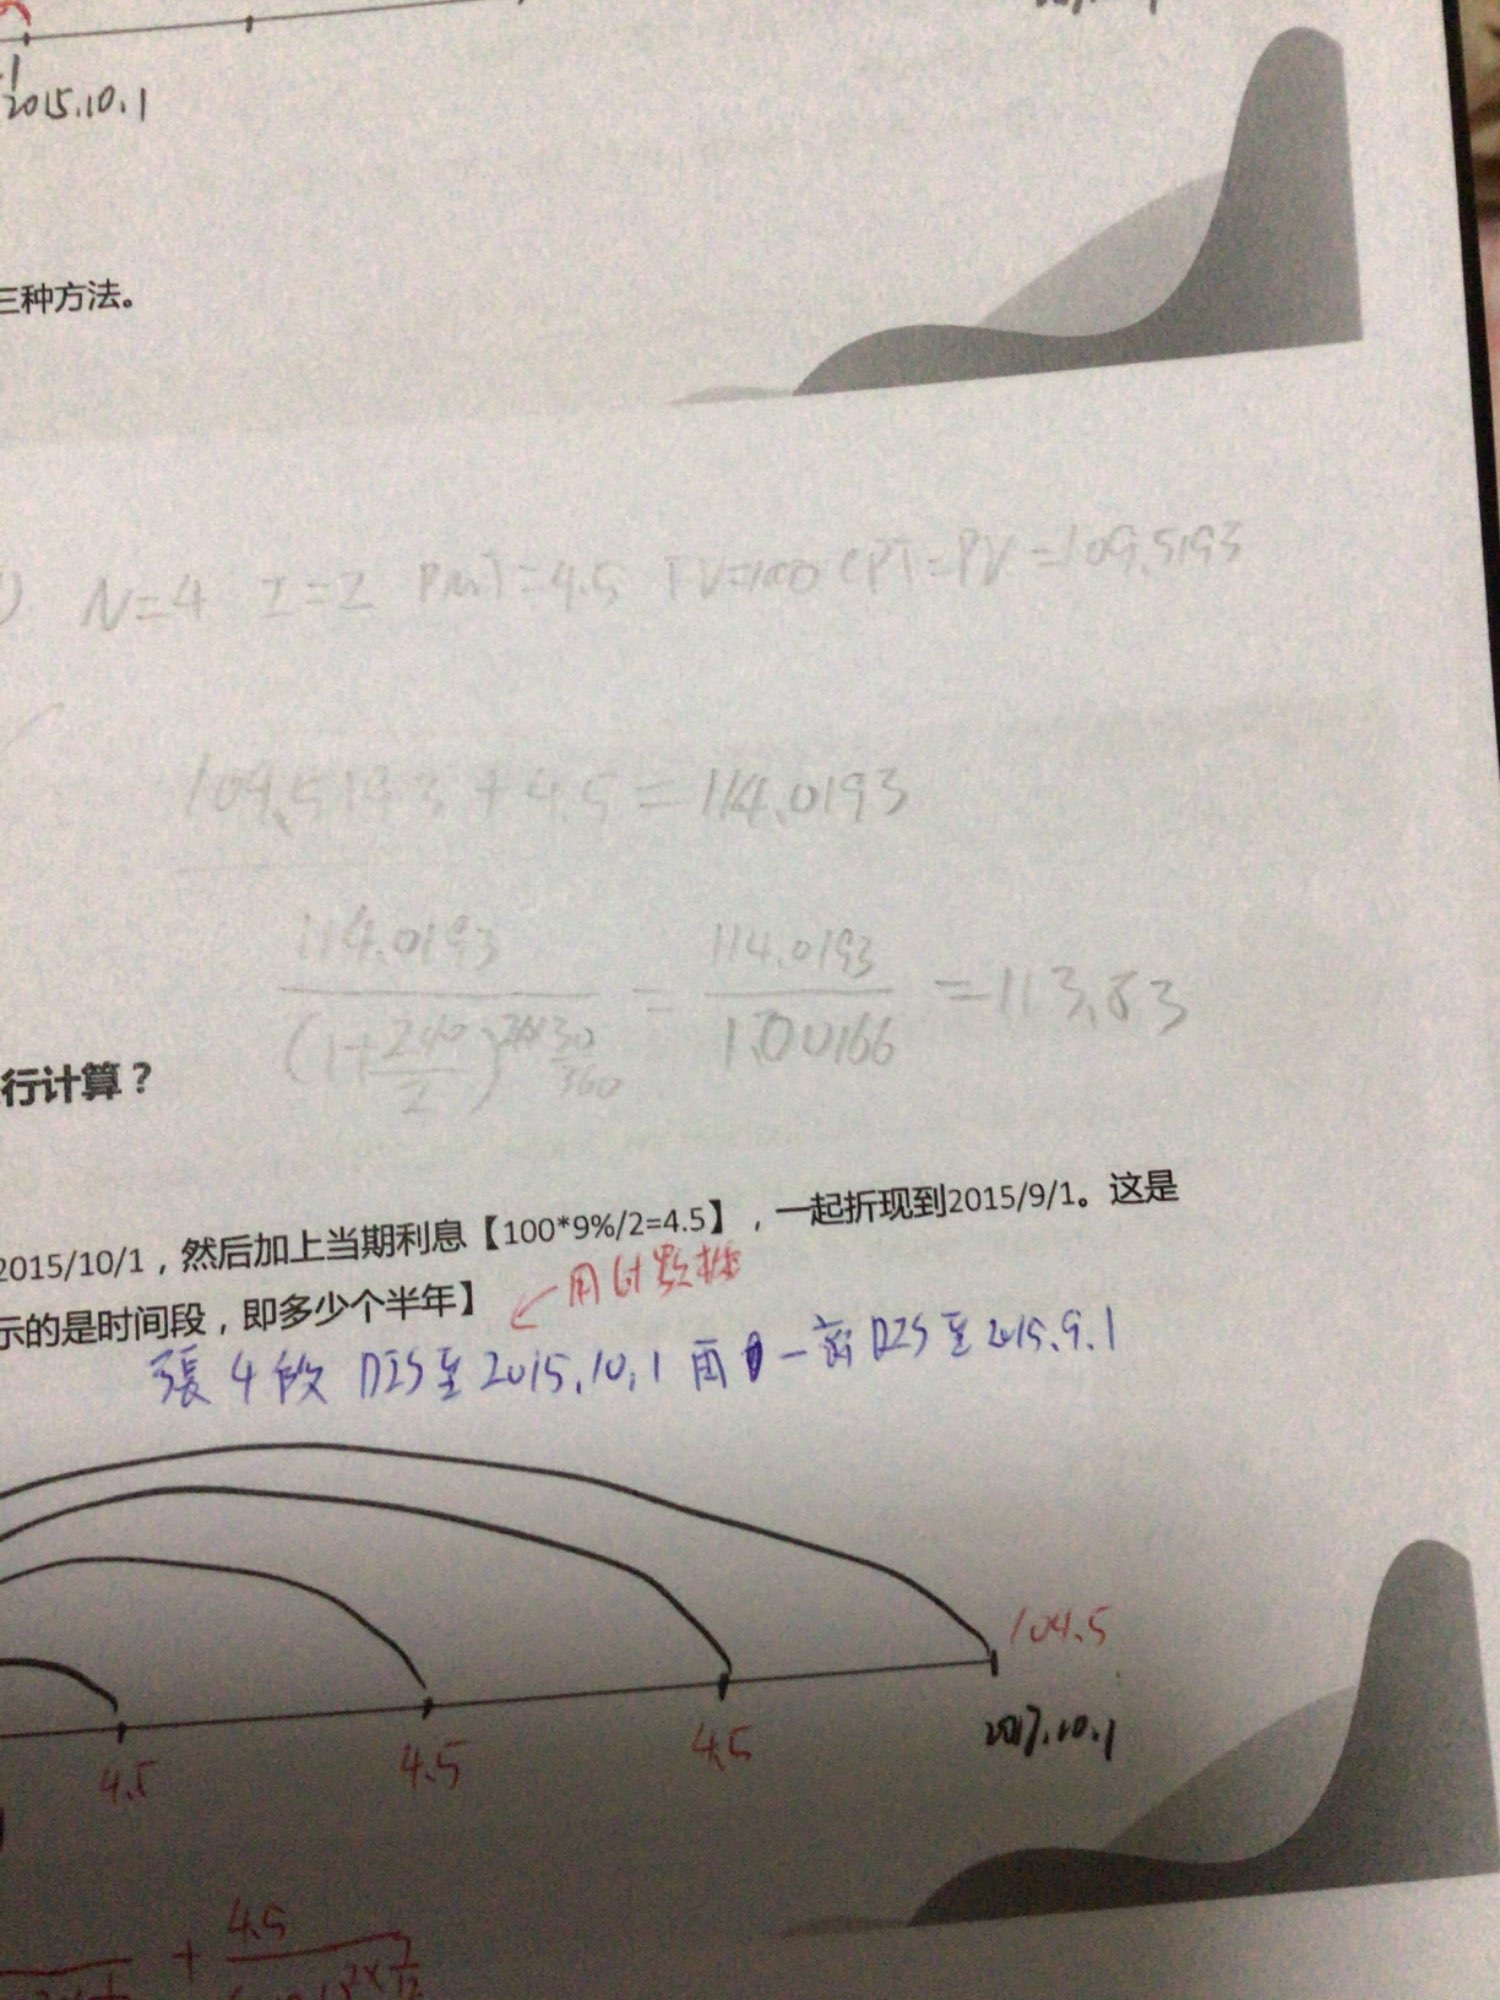 2015.10.1
三种方法。
N=4 I=2 PMT=4.5 FV=100 CPT=PV=109.5193
109.5193+4.5=114.0193
114.0193 114.0193
= =113.83
1.00166
360
行计算？
2015/10/1，然后加上当期利息【100*9%/2=4.5】，一起折现到2015/9/1。这是
示的是时间段，即多少个半年】
用计数机
4段 DIS至2015.10.1 再一 DIS至2015.9.1
104.5
4.5 4.5 4.5 2017.10.1
+ 4.5